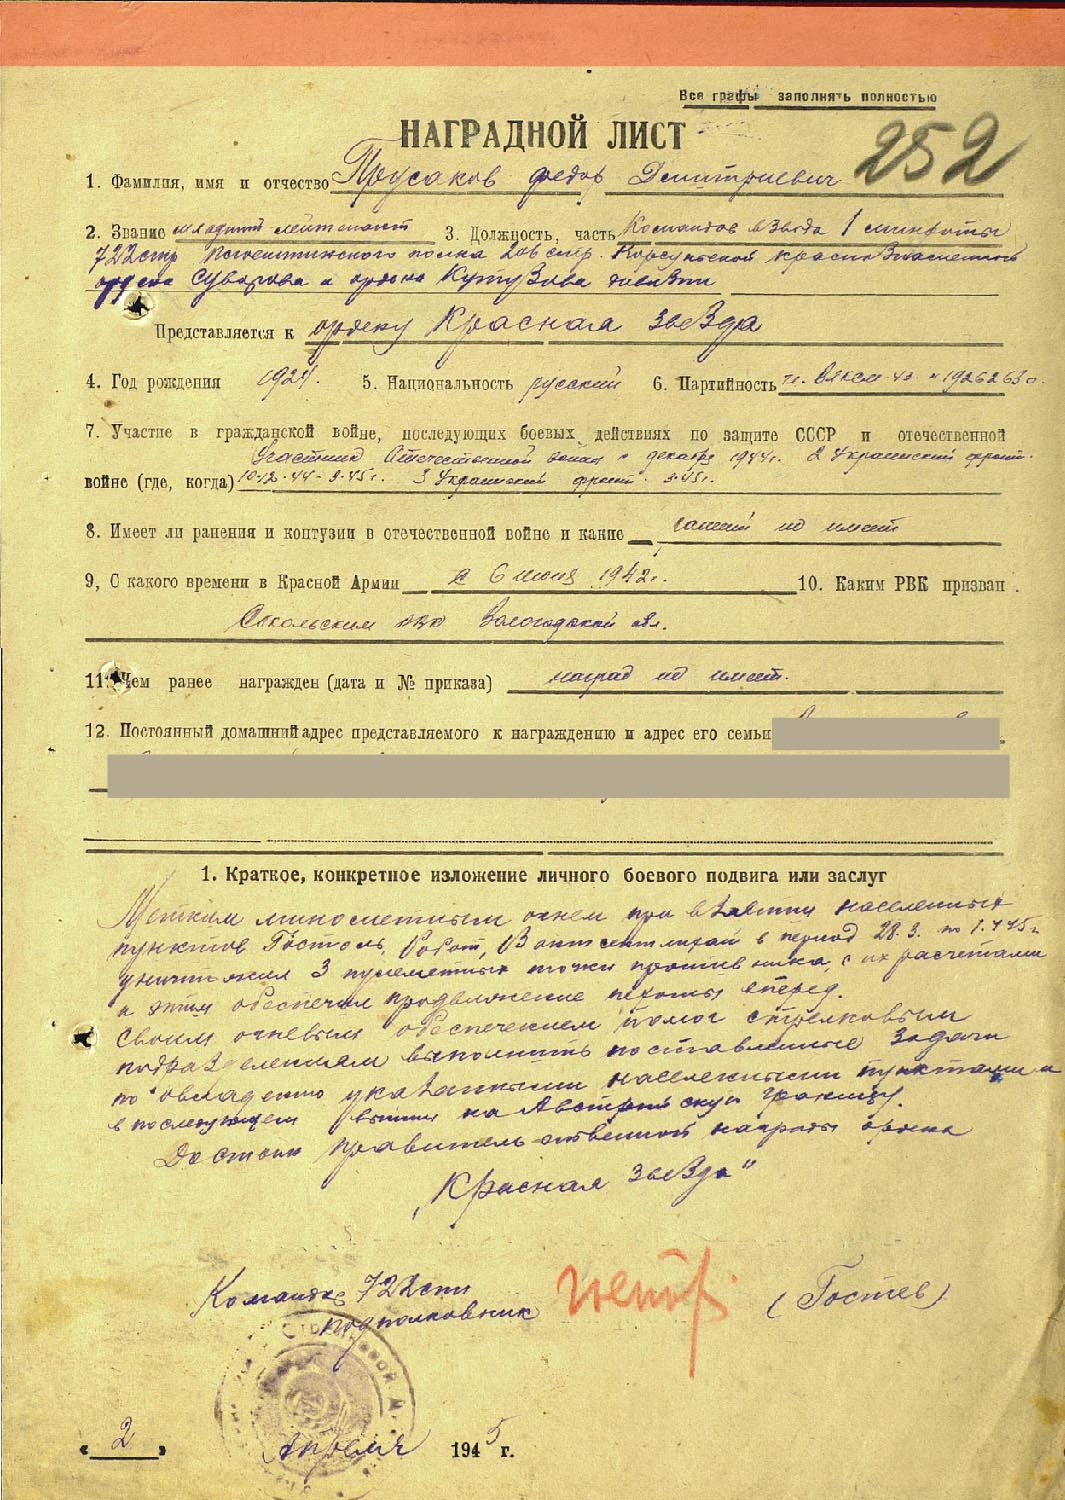 Все графы заполнять полностью
НАГРАДНОЙ ЛИСТ 252
1. Фамилия, имя и отчество Прусаков Федор Дмитриевич
2. Звание младший лейтенант 3. Должность, часть Командов взвода 1 минроты
722 стр полка 206 стр. Корсуньской краснознаменной
ордена Суворова и ордена Кутузова дивизии
Представляется к ордену Красная звезда
4. Год рождения 1924. 5. Национальность русский 6. Партийность
7. Участие в гражданской войне, последующих боевых действиях по защите СССР и отечественной
Участник Отечественной войны с декабря 1944г. 2 Украинский фронт.
войне (где, когда) 10-12-44-3-45г. 3 Украинский фронт. 3-45г.
8. Имеет ли ранения и контузии в отечественной войне и какие ранений не имеет
9, С какого времени в Красной Армии с 6 июня 1942г. 10. Каким РВК призван
Сокольским рвк Вологодской обл.
11. Чем ранее награжден (дата и № приказа) наград не имеет.
12. Постоянный домашний адрес представляемого к награждению и адрес его семьи
1. Краткое, конкретное изложение личного боевого подвига или заслуг
Метким минометным огнем при взятии населенных
пунктов Гостоль, в период 28.3. по 1.4.45г
уничтожил 3 пулеметных точки противника, с их расчетами
и этим обеспечил продвижение пехоты вперед.
Своим огневым обеспечением помог стрелковым
подразделениям выполнить поставленные задачи
по овладению указанными населенными пунктами и
в последующем выйти на Австрийскую границу.
Достоин правительственной награды ордена
„Красная звезда"
Командир 722 сп
подполковник (Гостев)
« 2 » Апреля 1945 г.